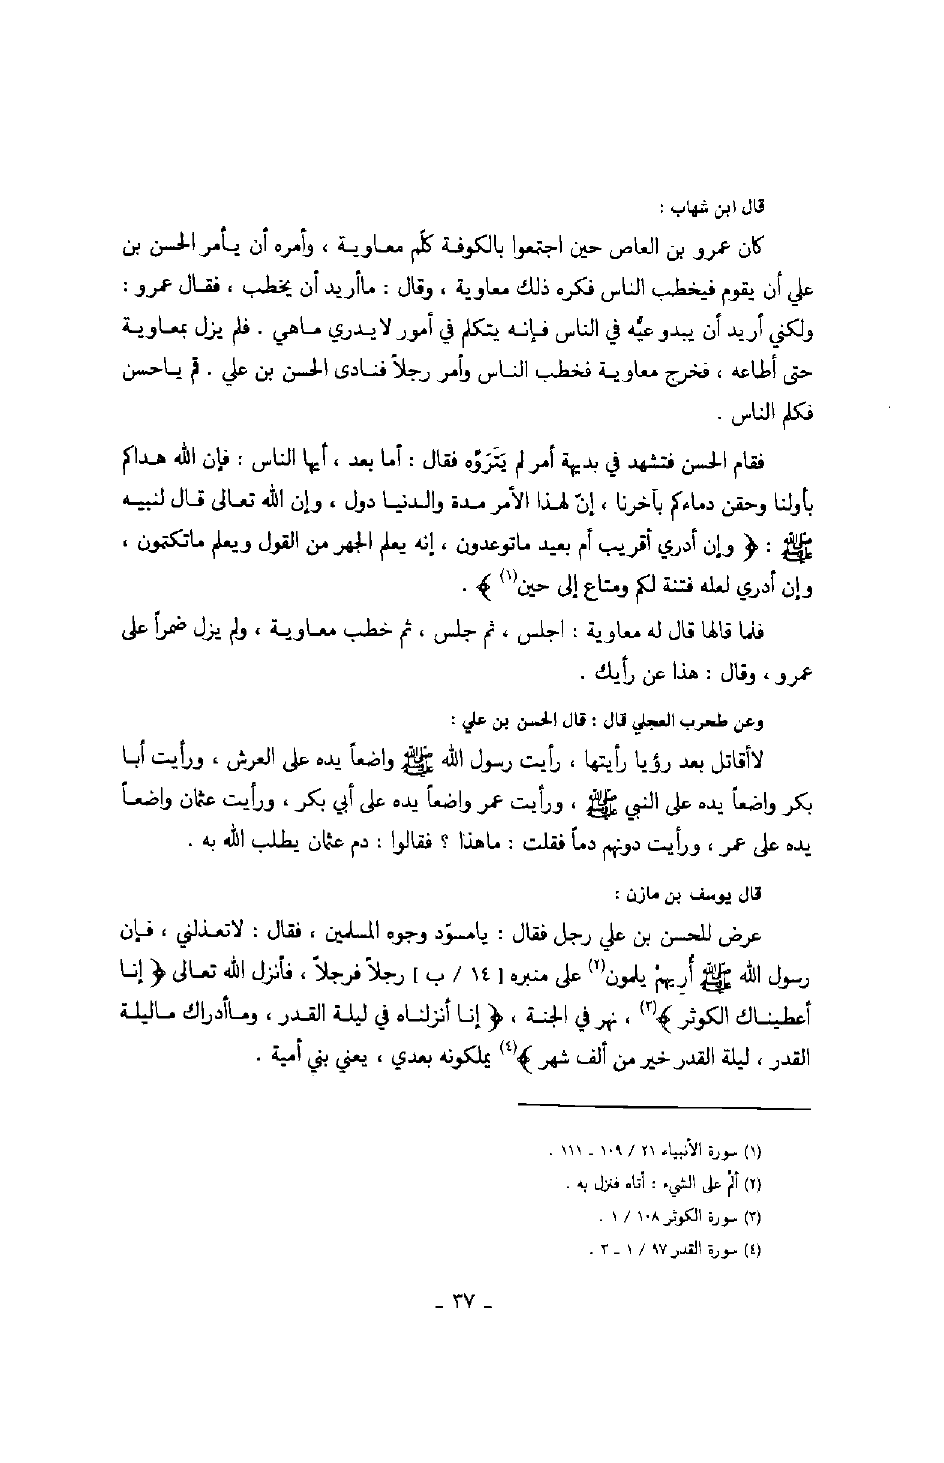 قال ابن شهاب :
كان عمرو بن العاص حين اجتمعوا بالكوفة كلّم معاوية ، وأمره أن يأمر الحسن بن
علي أن يقوم فيخطب الناس فكره ذلك معاوية ، وقال : ماأريد أن يخطب ، فقال عمرو :
ولكني أريد أن يبدو عيُّه في الناس فإنه يتكلم في أمور لايدري ماهي . فلم يزل بمعاوية
حتى أطاعه ، فخرج معاوية فخطب الناس وأمر رجلاً فنادى الحسن بن علي . قم ياحسن
فكلم الناس .
فقام الحسن فتشهد في بديهة أمر لم يَتَرَوَّه فقال : أما بعد ، أيها الناس : فإن الله هداكم
بأولنا وحقن دماءكم بآخرنا ، إنّ لهذا الأمر مدة والدنيا دول ، وإن الله تعالى قال لنبيه
ﷺ : ﴿ وإن أدري أقريب أم بعيد ماتوعدون ، إنه يعلم الجهر من القول ويعلم ماتكتمون ،
وإن أدري لعله فتنة لكم ومتاع إلى حين(١) ﴾ .
فلما قالها قال له معاوية : اجلس ، ثم جلس ، ثم خطب معاوية ، ولم يزل ضمراً على
عمرو ، وقال : هذا عن رأيك .
وعن طحرب العجلي قال : قال الحسن بن علي :
لاأقاتل بعد رؤيا رأيتها ، رأيت رسول الله ﷺ واضعاً يده على العرش ، ورأيت أبا
بكر واضعاً يده على النبي ﷺ ، ورأيت عمر واضعاً يده على أبي بكر ، ورأيت عثمان واضعاً
يده على عمر ، ورأيت دونهم دماً فقلت : ماهذا ؟ فقالوا : دم عثمان يطلب الله به .
قال يوسف بن مازن :
عرض للحسن بن علي رجل فقال : يامسوّد وجوه المسلمين ، فقال : لاتعذلني ، فإن
رسول الله ﷺ أُريهمْ يلمون(٢) على منبره [ ١٤ / ب ] رجلاً فرجلاً ، فأنزل الله تعالى ﴿ إنا
أعطيناك الكوثر ﴾(٣) ، نهر في الجنة ، ﴿ إنا أنزلناه في ليلة القدر ، وماأدراك ماليلة
القدر ، ليلة القدر خير من ألف شهر ﴾(٤) يملكونه بعدي ، يعني بني أمية .
(١) سورة الأنبياء ٢١ / ١٠٩ ـ ١١١ .
(٢) ألمّ على الشيء : أتاه فنزل به .
(٣) سورة الكوثر ١٠٨ / ١ .
(٤) سورة القدر ٩٧ / ١ ـ ٣ .
ـ ٣٧ ـ